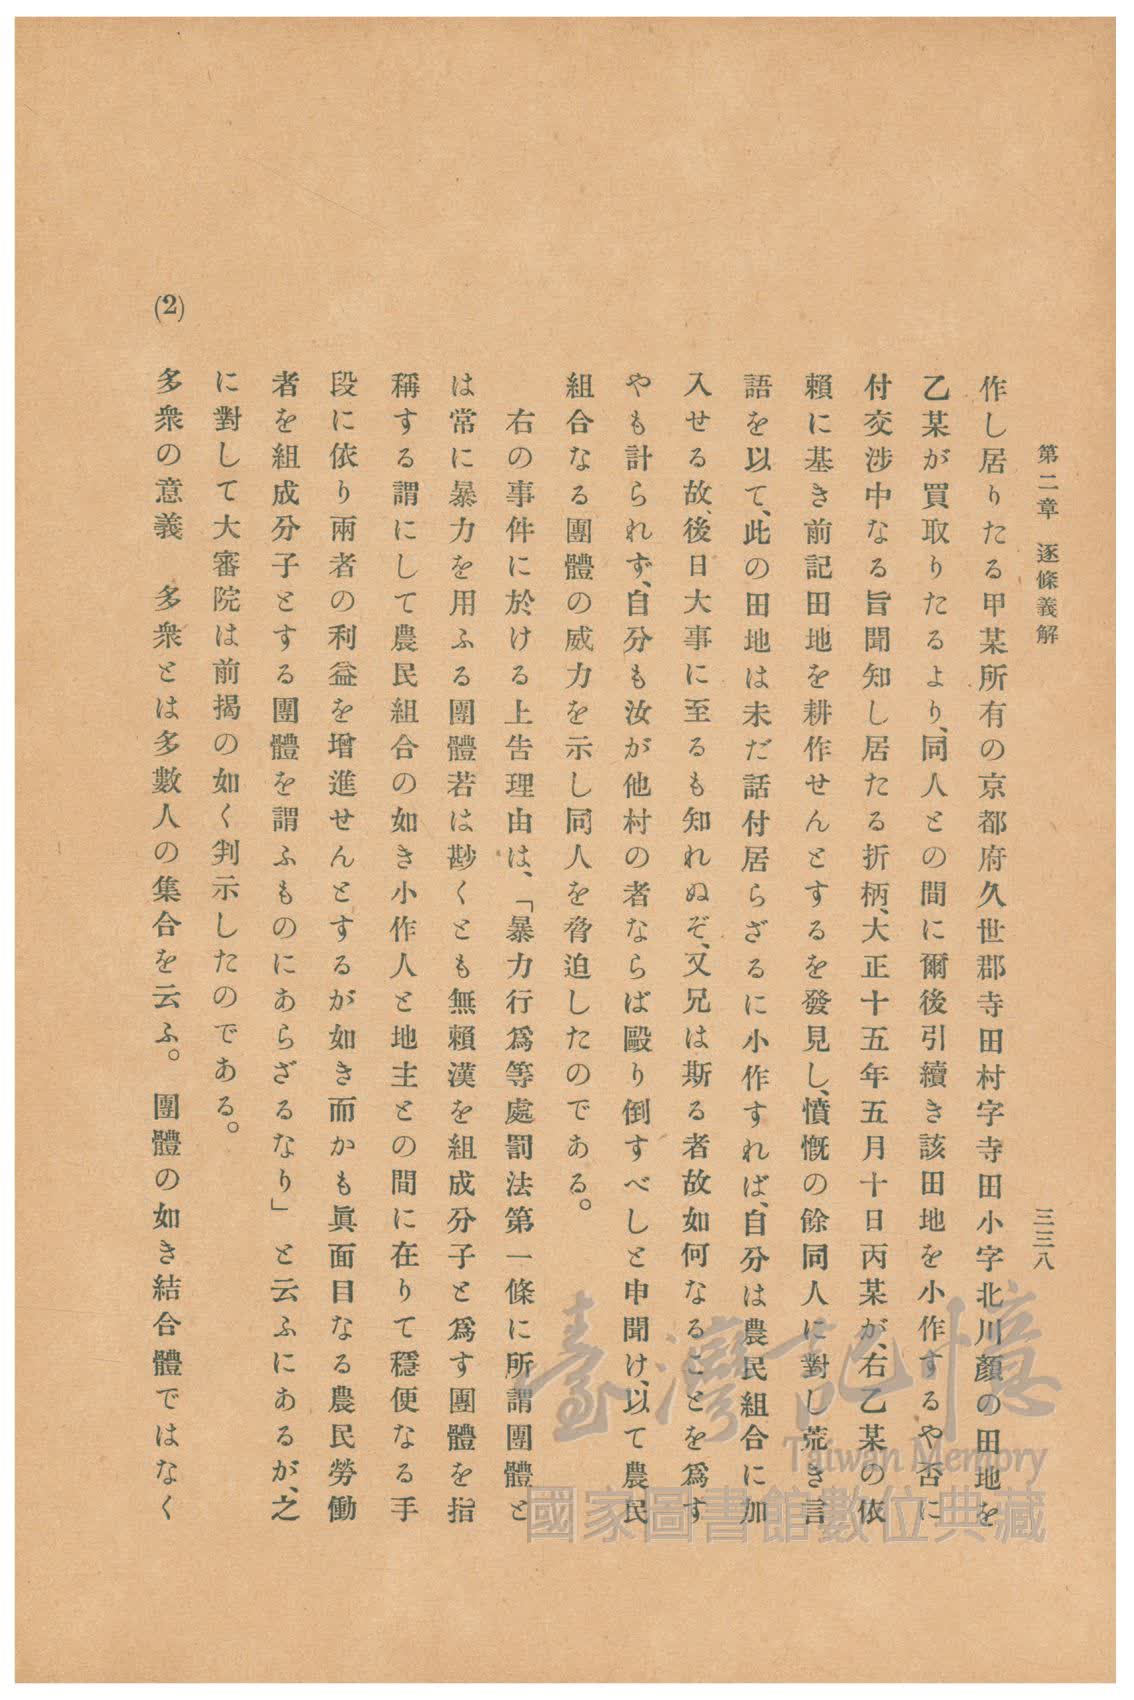 第二章　逐條義解
三三八
作し居りたる甲某所有の京都府久世郡寺田村字寺田小字北川顏の田地を
乙某が買取りたるより、同人との間に爾後引續き該田地を小作するや否に
付交涉中なる旨聞知し居たる折柄、大正十五年五月十日丙某が、右乙某の依
賴に基き前記田地を耕作せんとするを發見し、憤慨の餘同人に對し荒き言
語を以て、此の田地は未だ話付居らざるに小作すれば、自分は農民組合に加
入せる故、後日大事に至るも知れぬぞ、又兄は斯る者故如何なることを爲す
やも計られず、自分も汝が他村の者ならば毆り倒すべしと申聞け、以て農民
組合なる團體の威力を示し同人を脅迫したのである。
右の事件に於ける上告理由は、「暴力行爲等處罰法第一條に所謂團體と
は常に暴力を用ふる團體若は尠くとも無賴漢を組成分子と爲す團體を指
稱する謂にして農民組合の如き小作人と地主との間に在りて穩便なる手
段に依り兩者の利益を增進せんとするが如き而かも眞面目なる農民勞働
者を組成分子とする團體を謂ふものにあらざるなり」と云ふにあるが、之
に對して大審院は前揭の如く判示したのである。
(2)　多衆の意義　多衆とは多數人の集合を云ふ。團體の如き結合體ではなく
臺灣記憶
Taiwan Memory
國家圖書館數位典藏